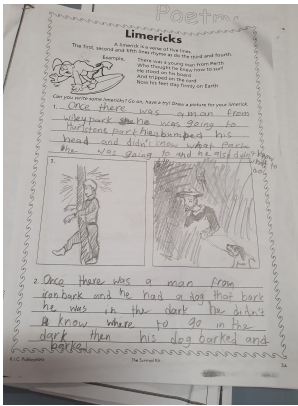 Poetry
Limericks
A limerick is a verse of five lines.
The first, second and fifth lines rhyme as do the third and fourth.
Example:
There was a young man from Perth
Who thought he knew how to surf
He stood on his board
And tripped on the cord
Now his feet stay firmly on Earth
Can you write some limericks? Go on, have a try! Draw a picture for your limerick.
1. Once there was a man from
wiley park he was going to
park he bumped his
head and didn't know what Park
he was going to and he also didn't know
what to
1.
2.
2. Once there was a man from
ironbark and he had a dog that bark
he was in the dark he didn't
know where to go in the
dark then his dog barked and
barked.
R.I.C. Publications